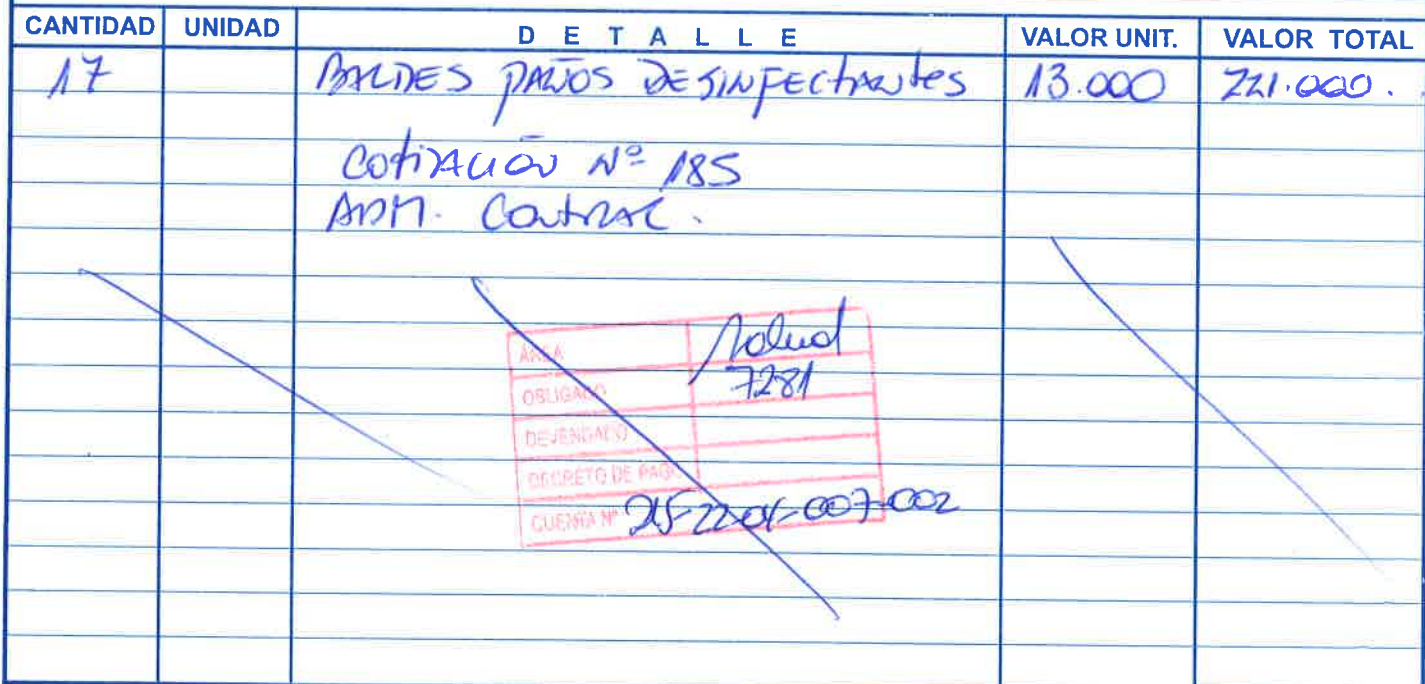 CANTIDAD UNIDAD D E T A L L E VALOR UNIT. VALOR TOTAL
17 BALDES PAÑOS DESINFECTANTES 13.000 221.000.
COTIZACIÓN Nº 185
ADM. CENTRAL.
ÁREA Salud
OBLIGADO 7281
DEVENGADO
DECRETO DE PAGO
CUENTA Nº 215-22-04-007-002